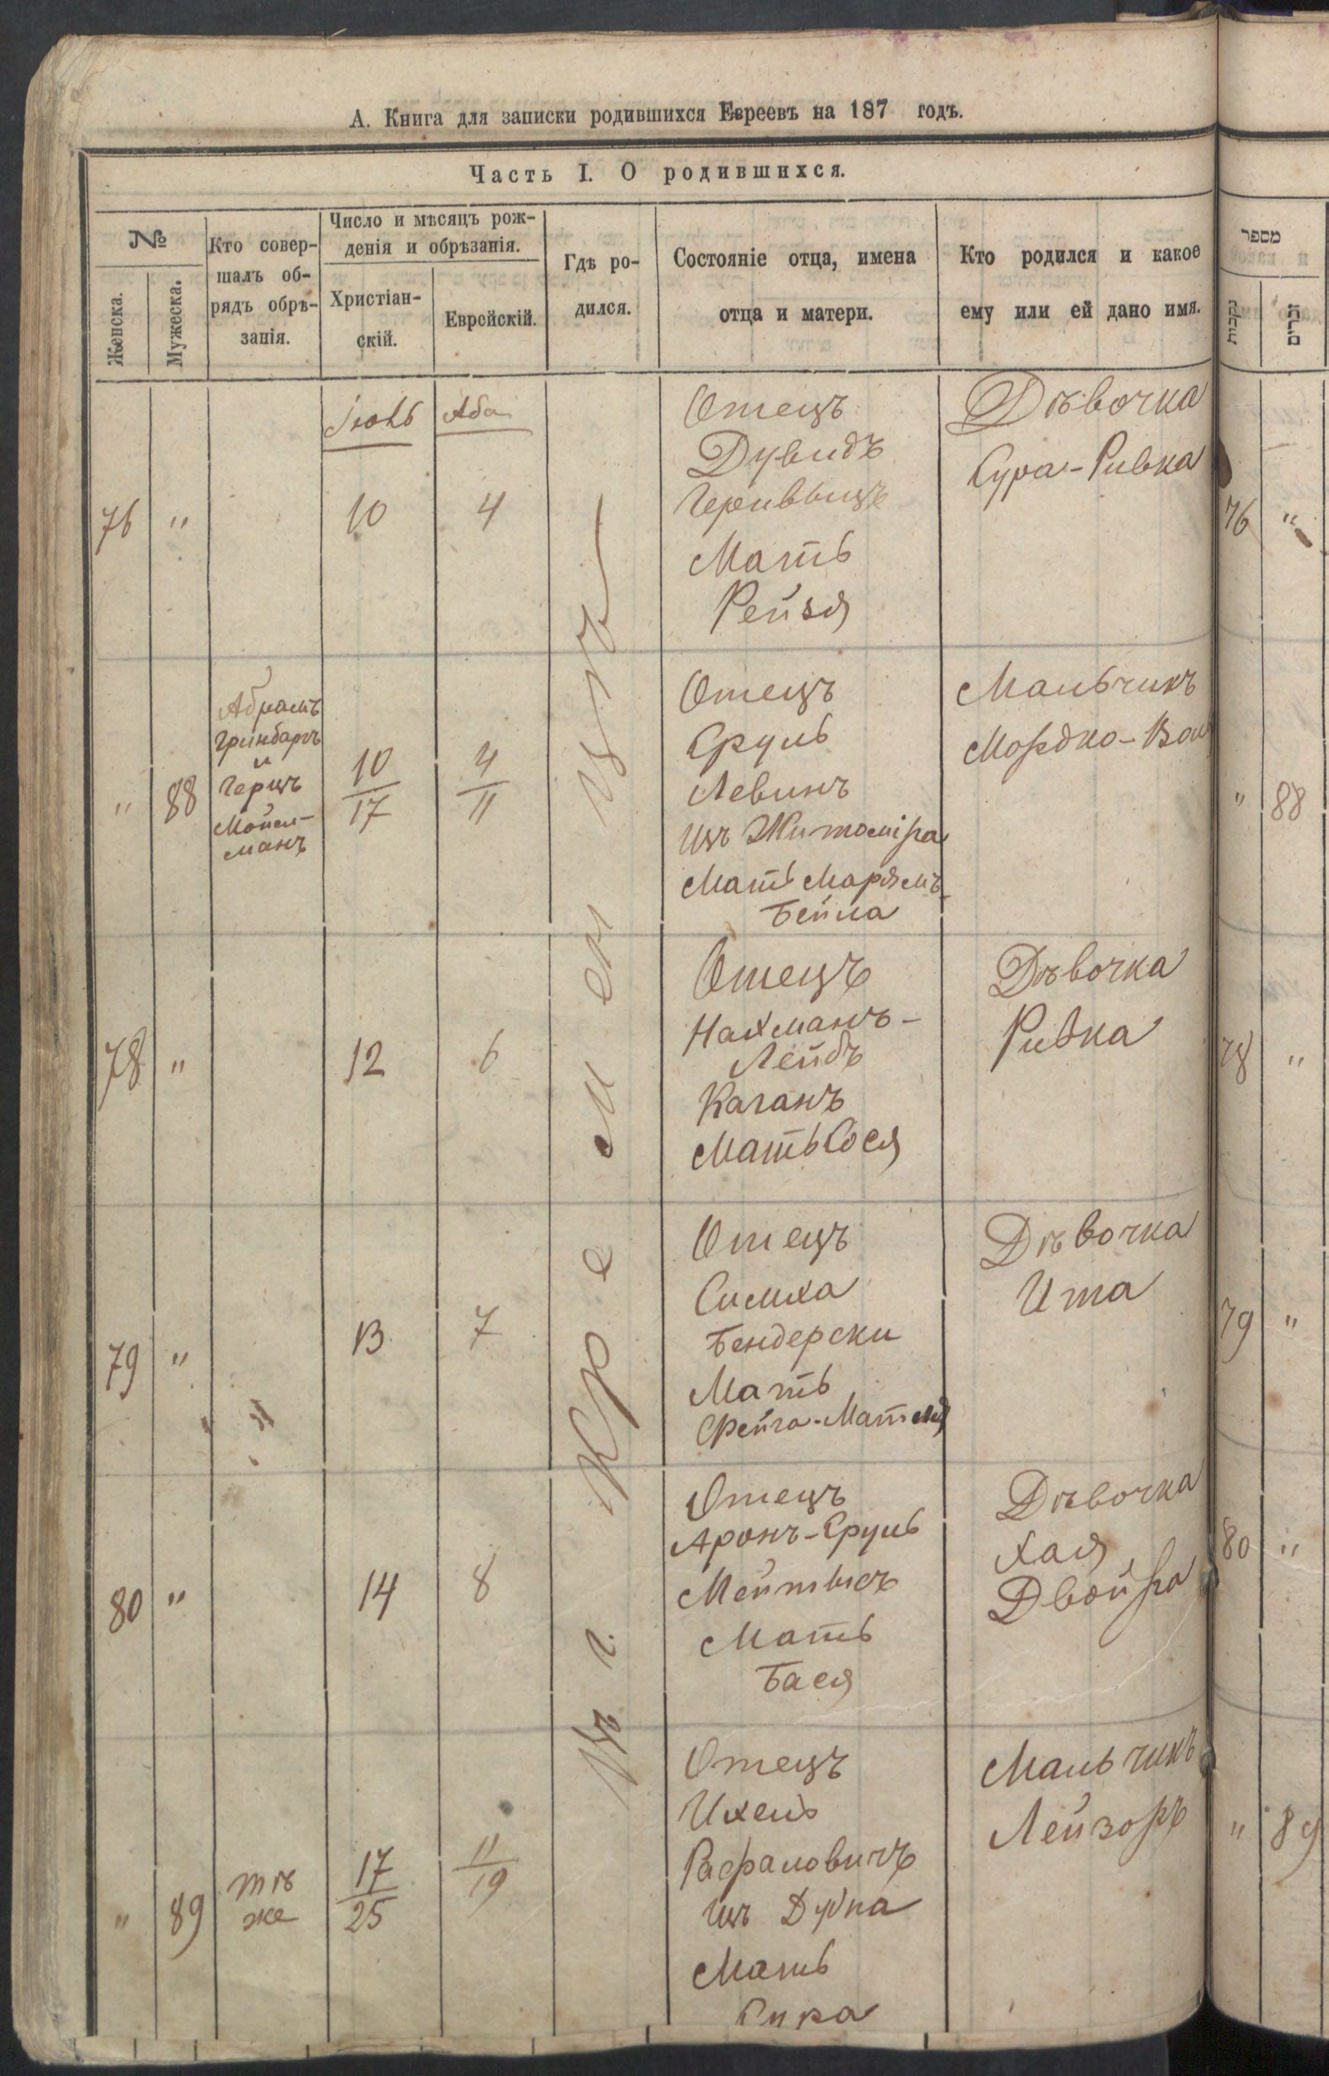 А. Книга для записки родившихся Евреевъ на 187 годъ.
Часть I. О родившихся.
№
Женска.
Мужеска.
Кто совер-
шалъ об-
рядъ обрѣ-
занія.
Число и мѣсяцъ рож-
денія и обрѣзанія.
Христіан-
скій.
Еврейскій.
Гдѣ ро-
дился.
Состояніе отца, имена
отца и матери.
Кто родился и какое
ему или ей дано имя.
מספר
נקבות
זכרים
Іюль
Аба
Въ г. Кременцѣ
76
"
10
4
Отецъ
Дувидъ
Мать
Рейзя
Дѣвочка
Сура-Ривка
76
"
"
88
Абрамъ
Гринбаргъ
и
Герцъ
Мойсл-
манъ
10
17
4
11
Отецъ
Сруль
Левинъ
изъ Житоміра
Мать Марямъ-
Бейла
Мальчикъ
Мордко-
"
88
78
"
12
6
Отецъ
Нахманъ-
Лейбъ
Каганъ
Мать Сося
Дѣвочка
Ривка
78
"
79
"
13
7
Отецъ
Симха
Бендерски
Мать
Фейга-
Дѣвочка
Ита
79
"
80
"
14
8
Отецъ
Аронъ-Сруль
Мать
Бася
Дѣвочка
Хая
Двойра
80
"
"
89
тѣ
же
17
25
11
19
Отецъ
Ихель
Рафаловичъ
изъ Дубна
Мать
Мальчикъ
Лейзоръ
"
89